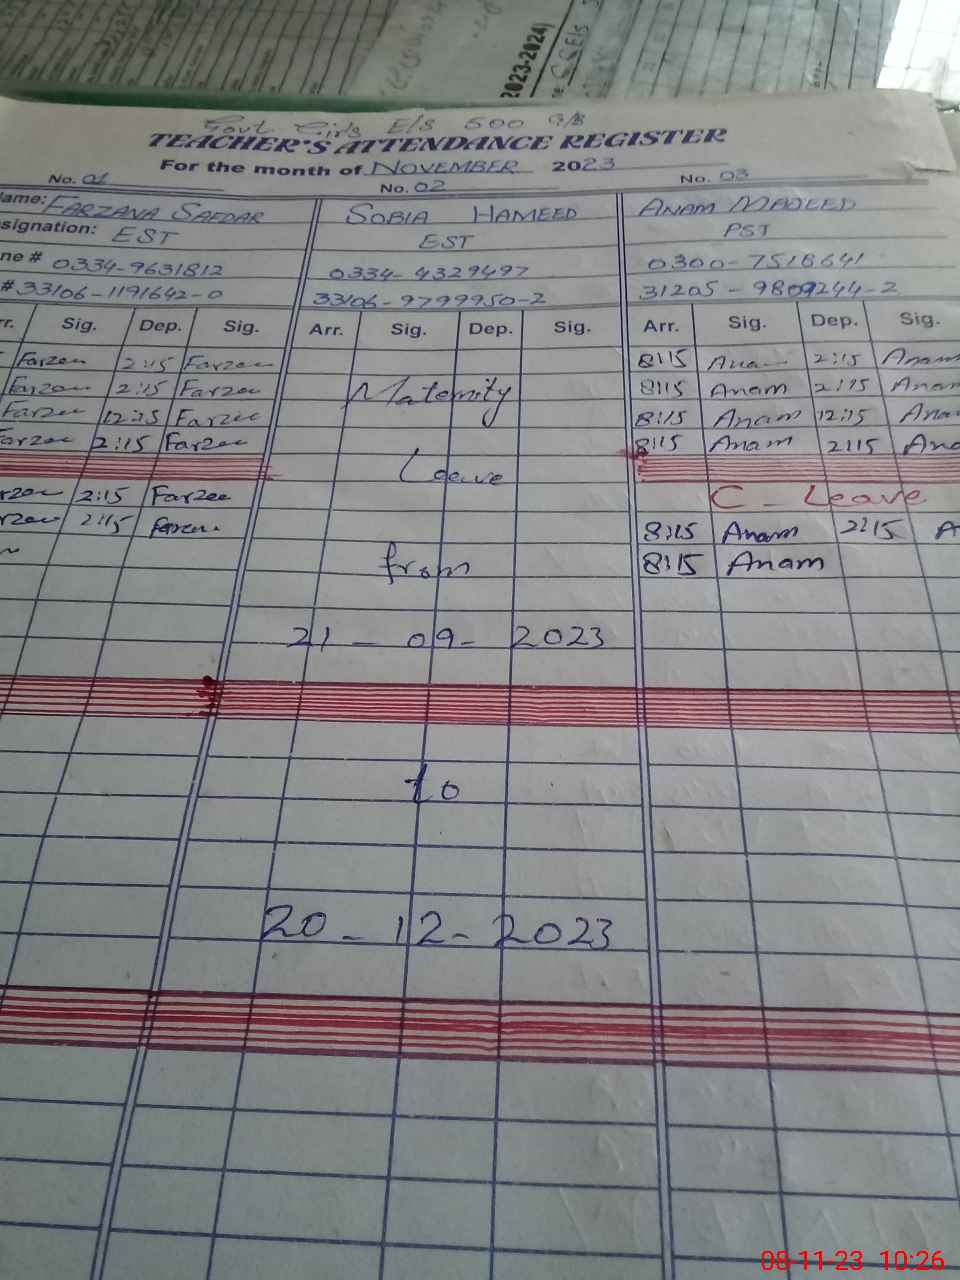 2023-2024)
Govt Girls E/S 500 G/B
TEACHER'S ATTENDANCE REGISTER
For the month of NOVEMBER 2023
No. 01 No. 02 No. 03
ame: FARZANA SAFDAR SOBIA HAMEED ANAM MAJEED
signation: EST EST PST
ne # 0334-9631812 0334-4329497 0300-7518641
# 33106-1191642-0 33106-9799950-2 31205-9809244-2
rr. Sig. Dep. Sig. Arr. Sig. Dep. Sig. Arr. Sig. Dep. Sig.
Farzen 2:15 Farzee 8:15 Anam 2:15 Anam
Farzen 2:15 Farzee Maternity 8:15 Anam 2:15 Ana
Farzee 12:15 Farzee 8:15 Anam 12:15 Ana
Farzee 2:15 Farzee Leave 8:15 Anam 2:15 Ana
rzen 2:15 Farzee C - Leave
rzen 2:15 Farzen 8:15 Anam 2:15 A
from 8:15 Anam
21 - 09 - 2023
to
20 - 12 - 2023
08-11-23 10:26